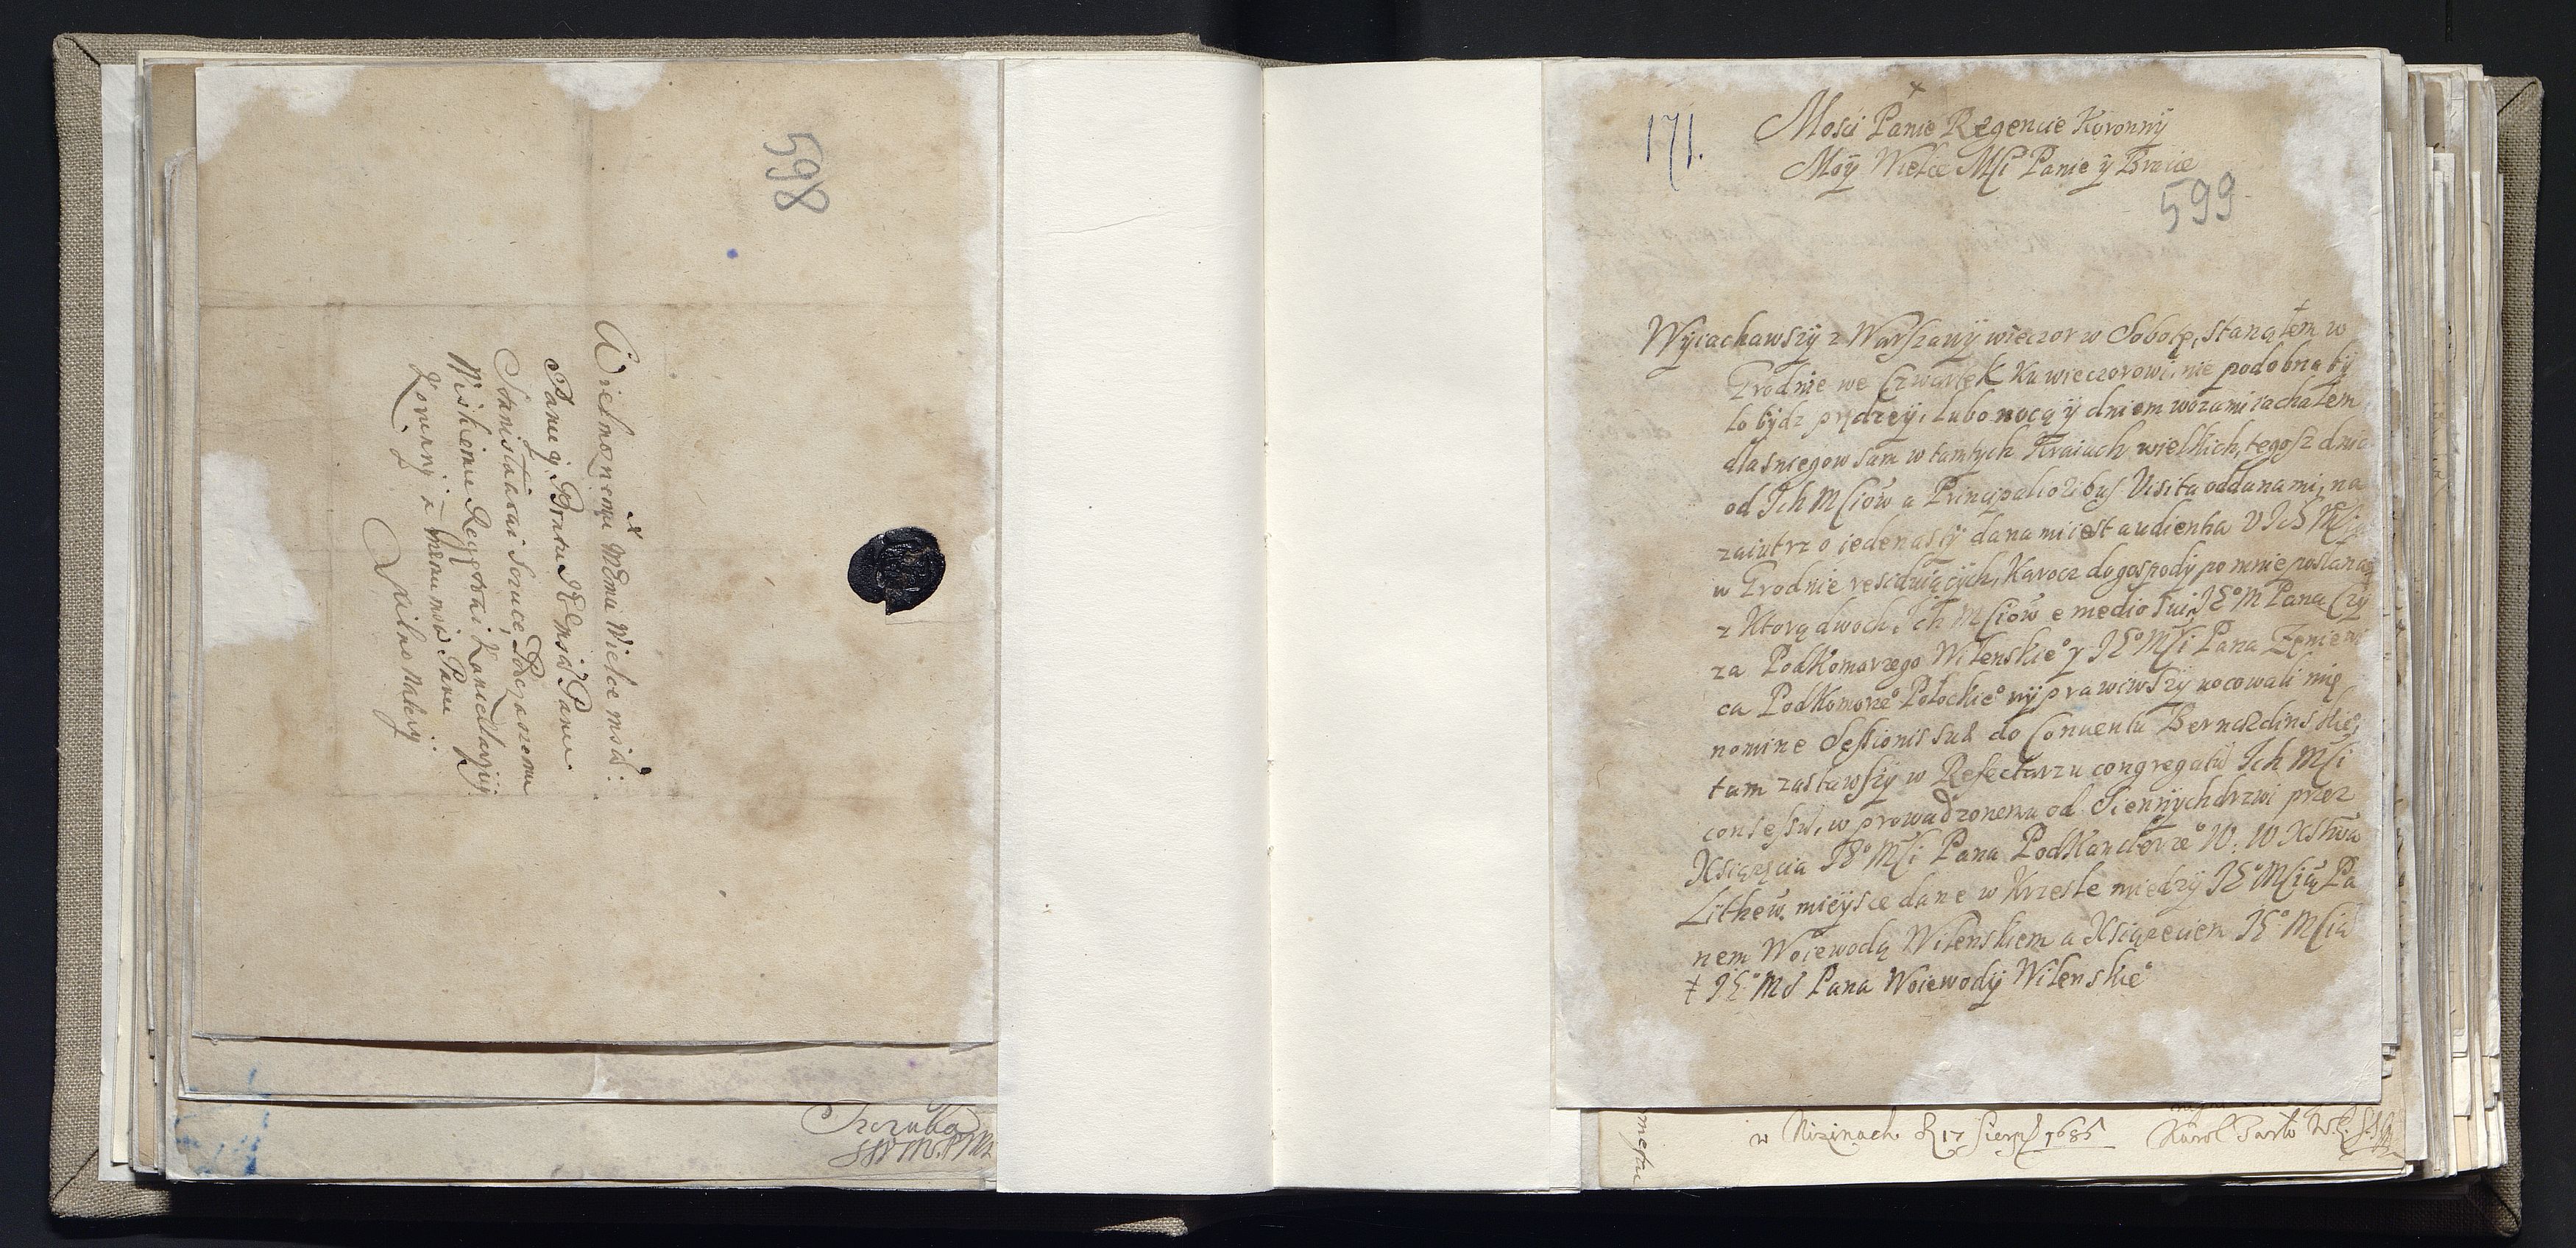 598
Wielmożnemu Mému Wielce msċi:
Panu y Bratu JEMści Panu
Stanisławowi Szczuce,
Miskiemu Regentowi Kancellaryÿ
Koronnÿ a memu mśċ Panu
Szczuka
171.
Mosci Panie Regencie Koronnÿ
Moÿ Wielce Msći Panie ÿ Bracie
599
Wÿiachawszÿ z Warszawÿ wieczor w Sobotę, stanąłem w
Grodnie we Czwartek Ku wieczorowi, nie podobna bÿ
ło bÿdz prędzeÿ, lubo nocą ÿ dniem wozami iachałem
dla sniegow sam w tamtych Kraiach wielkich, tegosz dnia
od Ich Msciow a Principalioribus Visita oddana mi, na
zaiutrz o iedenastÿ dana mi iest audientia V Ich Msci
w Grodnie residuiącÿch, Karoca do gospodÿ po mnie posłana
z Ktorą dwoch Ich Msciow e medio sui, JE° M Pana Czÿ
za PodKomorzego Wilenskie° y JE° Msci Pana Zenieni
ca PodKomorze° Połockie° wÿprawiwszÿ wocowali mię
nomine Sessionis suæ do Conuentu Bernardinskie°
tam zastawszÿ w Refectarzu congregatis Ich Msci
consessu, w prowadzonemu od Siennÿch drzwi przez
Xsiązęcia JE° Msci Pana PodKanclerze° W: W Xstwa
Lithew. mieÿsce dane w Krzesle miedzÿ JE° Mscią Pa
nem Woiewodą Wilenskiem a Xsiązeciem JE° Mscią
‡ JE° Mś Pana Woiewodÿ Wilenskie°
w Nizinach d 17 Sierp 1685
Karol Tarło